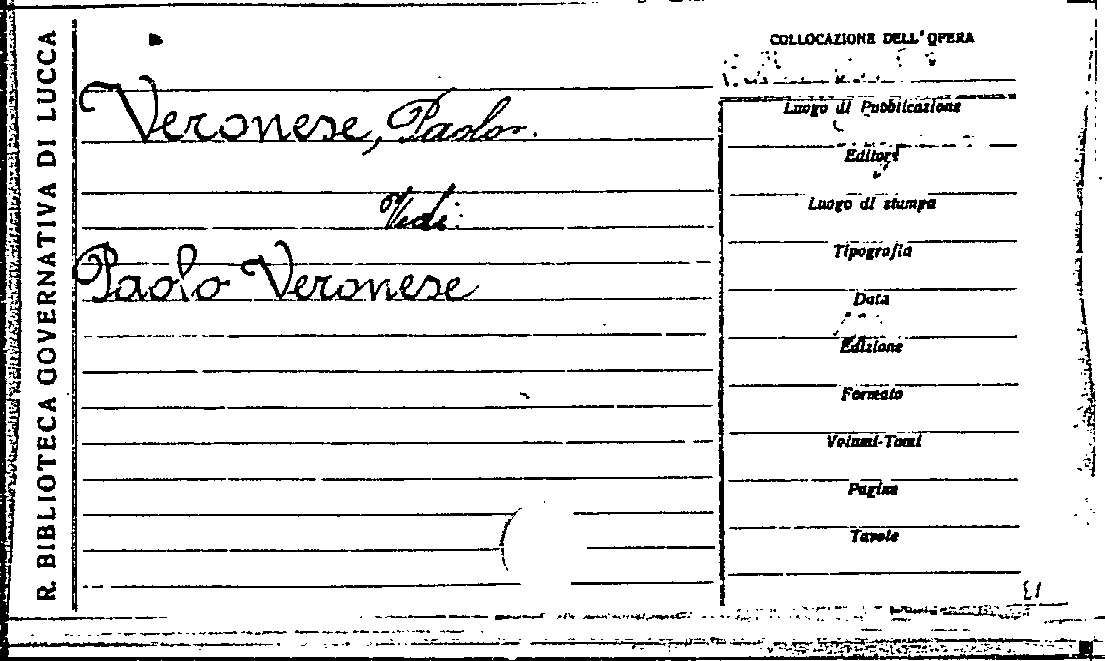 R. BIBLIOTECA GOVERNATIVA DI LUCCA
Veronese, Paolo.
Vedi:
Paolo Veronese
COLLOCAZIONE DELL'OPERA
Luogo di Pubblicazione
Editore
Luogo di stampa
Tipografia
Data
Edizione
Formato
Volumi-Tomi
Pagine
Tavole